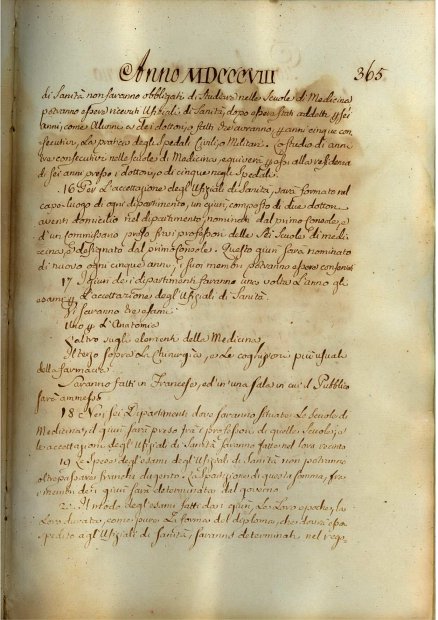 Anno MDCCCVIII 365.
di Sanità non saranno obbligati di studiare nelle Scuole di Medicina
potranno essere ricevuti Ufiziali di Sanità, dopo essere stati addetti p sei
anni, come Alunni a dei dottori, o fatti che avranno, p anni cinque con
secutivi, la pratica degli Spedali Civili, o Militari. Lo studio di anni
tre consecutivi nelle Scuole di Medicina, equivarrà p essi alla residenza
di sei anni presso i dottori, o di cinque negli Spedali.
16 Per L'accettazione degl'Ufiziali di Sanità, sarà formato nel
capo-luogo di ogni dipartimento, un giurì, composto di due dottori
aventi domicilio nel dipartimento, nominati dal primo Console, e
d'un Commissario preso fra i professori delle Sei Scuole di medi
cina, e designato dal primo Console. Questo giurì sarà nominato
di nuovo ogni cinque anni, i suoi membri potranno essere conservati
17 I giurì dei dipartimenti faranno una volta L'anno gli
esami p L'accettazione degl'Ufiziali di Sanità.
Vi saranno tre esami
Uno p L'Anatomia
L'altro sugli elementi della Medicina
Il terzo sopra La Chirurgia, e Le cognizioni più usuali
della farmacia
Saranno fatti in Francese, ed in una sala in cui il Pubblico
sarà ammesso
18 Nei sei Dipartimenti dove saranno situate Le Scuole di
Medicina, il giurì sarà preso fra i professori di quelle Scuole, e
le accettazioni degl'Ufiziali di Sanità saranno fatte nel loro recinto
19 Le Spese degli esami degl'Ufiziali di Sanità non potranno
oltrepassare franchi dugento. La spartizione di questa somma, fra i
membri dei giurì sarà determinata dal governo
20 Il modo degli esami fatti dai giurì, Le Loro epoche, La
Loro durata, come pure La forma del diploma, che dovrà esse
spedito agl'Ufiziali di Sanità, saranno determinati nel rego-